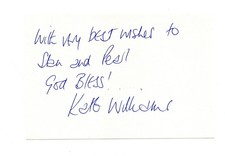 With my best wishes to
Stan and Pearl
God Bless!
Williams